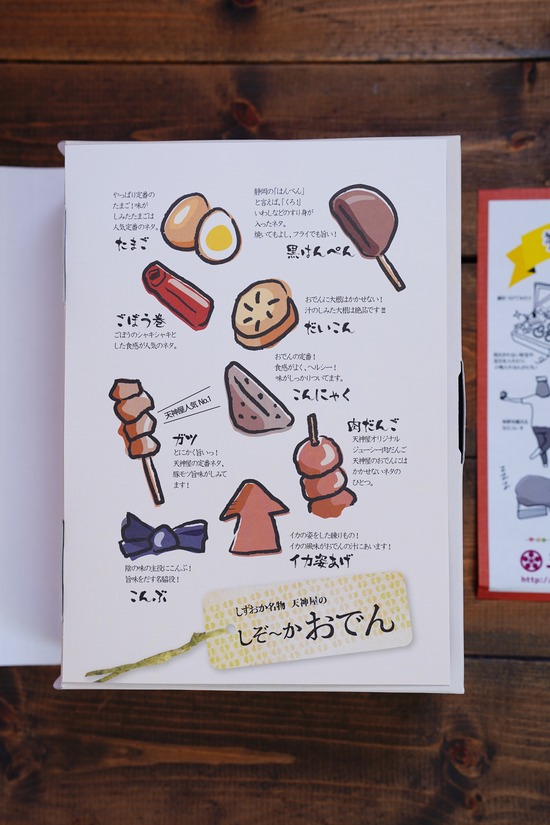 やっぱり定番の
たまご!味が
しみたたまごは
人気定番のネタ。
たまご
静岡の「はんぺん」
と言えば、「くろ」!
いわしなどのすり身が
入ったネタ。
焼いてもよし、フライでも旨い!
黒はんぺん
ごぼう巻
ごぼうのシャキシャキと
した食感が人気のネタ。
おでんに大根はかかせない!
汁のしみた大根は絶品です!!!
だいこん
おでんの定番!
食感がよく、ヘルシー!
味がしっかりついてます。
こんにゃく
天神屋人気No.1
ガツ
とにかく旨いっ!
天神屋の定番ネタ。
豚モツ旨味がしみて
ます!
肉だんご
天神屋オリジナル
ジューシー肉だんご
天神屋のおでんには
かかせないネタの
ひとつ。
陰の味の主役にこんぶ!
旨味をだす名脇役!
こんぶ
イカの姿をした練りもの!
イカの風味がおでんの汁にあいます!
イカ姿あげ
しずおか名物 天神屋の
しぞ〜かおでん
http:/